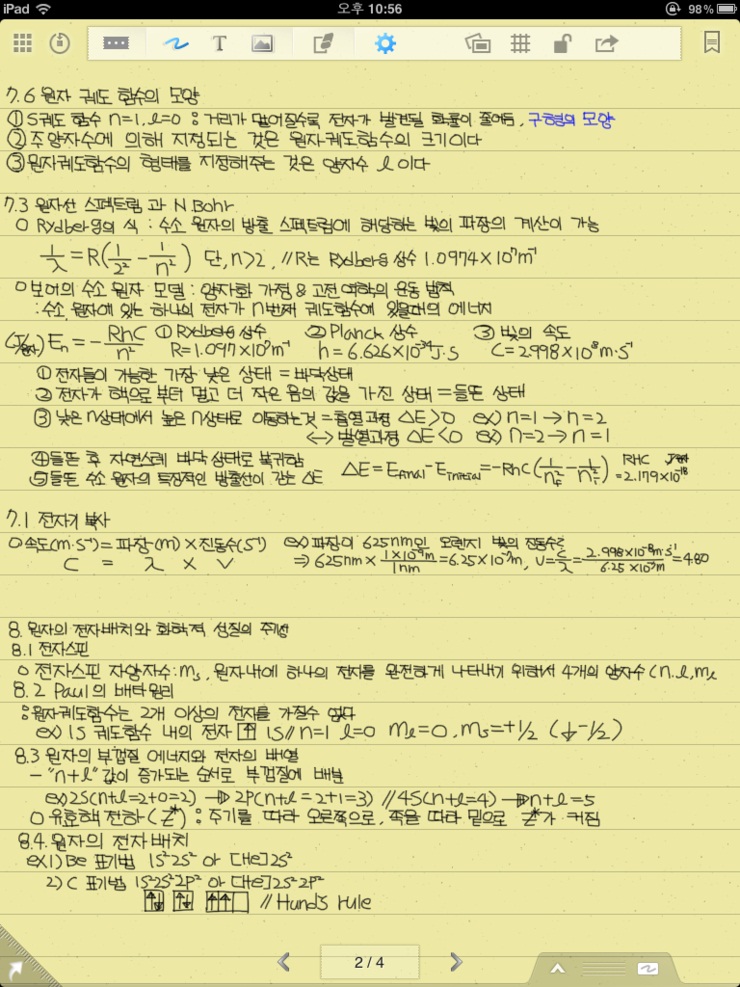 iPad 오후 10:56 98%
T
7.6 원자 궤도 함수의 모양
① S궤도 함수 n=1, l=0 : 거리가 멀어질수록 전자가 발견될 확률이 줄어듬, 구형의 모양
② 주양자수에 의해 지정되는 것은 원자궤도함수의 크기이다
③ 원자궤도함수의 형태를 지정해주는 것은 양자수 l 이다
7.3 원자선 스펙트럼과 N.Bohr
○ Rydberg의 식 : 수소 원자의 방출 스펙트럼에 해당하는 빛의 파장의 계산이 가능
1/λ = R(1/2² - 1/n²) 단, n>2, // R는 Rydberg 상수 1.0974×10⁷m⁻¹
○ 보어의 수소 원자 모델 : 양자화 가정 & 고전 역학의 운동 법칙
: 수소 원자에 있는 하나의 전자가 n번째 궤도함수에 있을때의 에너지
(J/원자) En = - RhC/n² ① Rydberg 상수 R=1.097×10⁷m⁻¹ ② Planck 상수 h=6.626×10⁻³⁴J·s ③ 빛의 속도 C=2.998×10⁸m·s⁻¹
① 전자들이 가능한 가장 낮은 상태 = 바닥상태
② 전자가 핵으로부터 멀고 더 작은 음의 값을 가진 상태 = 들뜬 상태
③ 낮은 n상태에서 높은 n상태로 이동하는것 = 흡열과정 ΔE>0 ex) n=1 → n=2
↔ 발열과정 ΔE<0 ex) n=2 → n=1
④ 들뜬 후 자연스레 바닥 상태로 복귀함
⑤ 들뜬 수소 원자의 특징적인 방출선이 갖는 ΔE ΔE = Efinal - Einitial = -RhC(1/nf² - 1/ni²) RHC =2.179×10⁻¹⁸
7.1 전자기 복사
○ 속도(m·s⁻¹) = 파장(m) × 진동수(s⁻¹) ex) 파장이 625nm인 오렌지 빛의 진동수는
C = λ × ν ⇒ 625nm × 1×10⁻⁹m/1nm = 6.25×10⁻⁷m, ν = C/λ = 2.998×10⁻⁸m·s⁻¹/6.25×10⁻⁷m = 4.80
8. 원자의 전자배치와 화학적 성질의 주기성
8.1 전자스핀
○ 전자스핀 자양자수: ms, 원자내에 하나의 전자를 완전하게 나타내기 위해서 4개의 양자수 (n.l,ml
8.2 Paul의 배타원리
: 원자궤도함수는 2개 이상의 전자를 가질수 없다
ex) 1S 궤도함수 내의 전자 ↑ 1S // n=1 l=0 ml=0, ms=+1/2 (↓ -1/2)
8.3 원자의 부껍질 에너지와 전자의 배열
- "n+l" 값이 증가되는 순서로 부껍질에 배분
ex) 2S(n+l=2+0=2) → 2P(n+l=2+1=3) // 4S(n+l=4) → n+l=5
○ 유효핵 전하 (Z*) : 주기를 따라 오른쪽으로, 족을 따라 밑으로 Z*가 커짐
8.4. 원자의 전자배치
ex 1) Be 표기법 1S²2S² or [He]2S²
2) C 표기법 1S²2S²2P² or [He]2S²2P²
↑↓ ↑↓ ↑↑ // Hund's rule
2 / 4